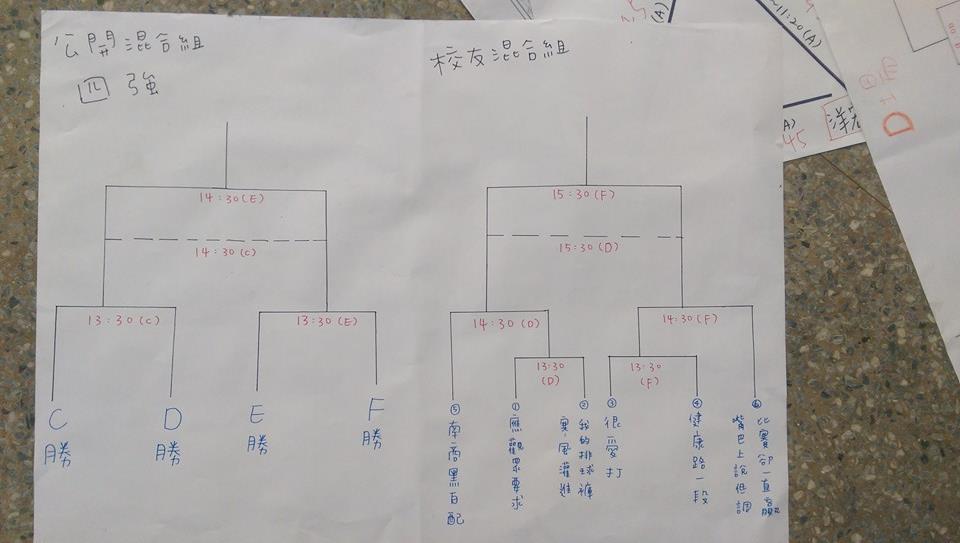 公開混合組
四 強
14:30(E)
14:30(C)
13:30(C)
13:30(E)
C勝
D勝
E勝
F勝
校友混合組
15:30(F)
15:30(D)
14:30(D)
14:30(F)
13:30
(D)
13:30
(F)
⑤南商黑白配
①應觀眾要求
②我的排球褲
要風灌進
③很愛打
④健康路一段
⑥比賽卻一直
嘴巴上說低調
11:20(A)
(A)
A)
45
D